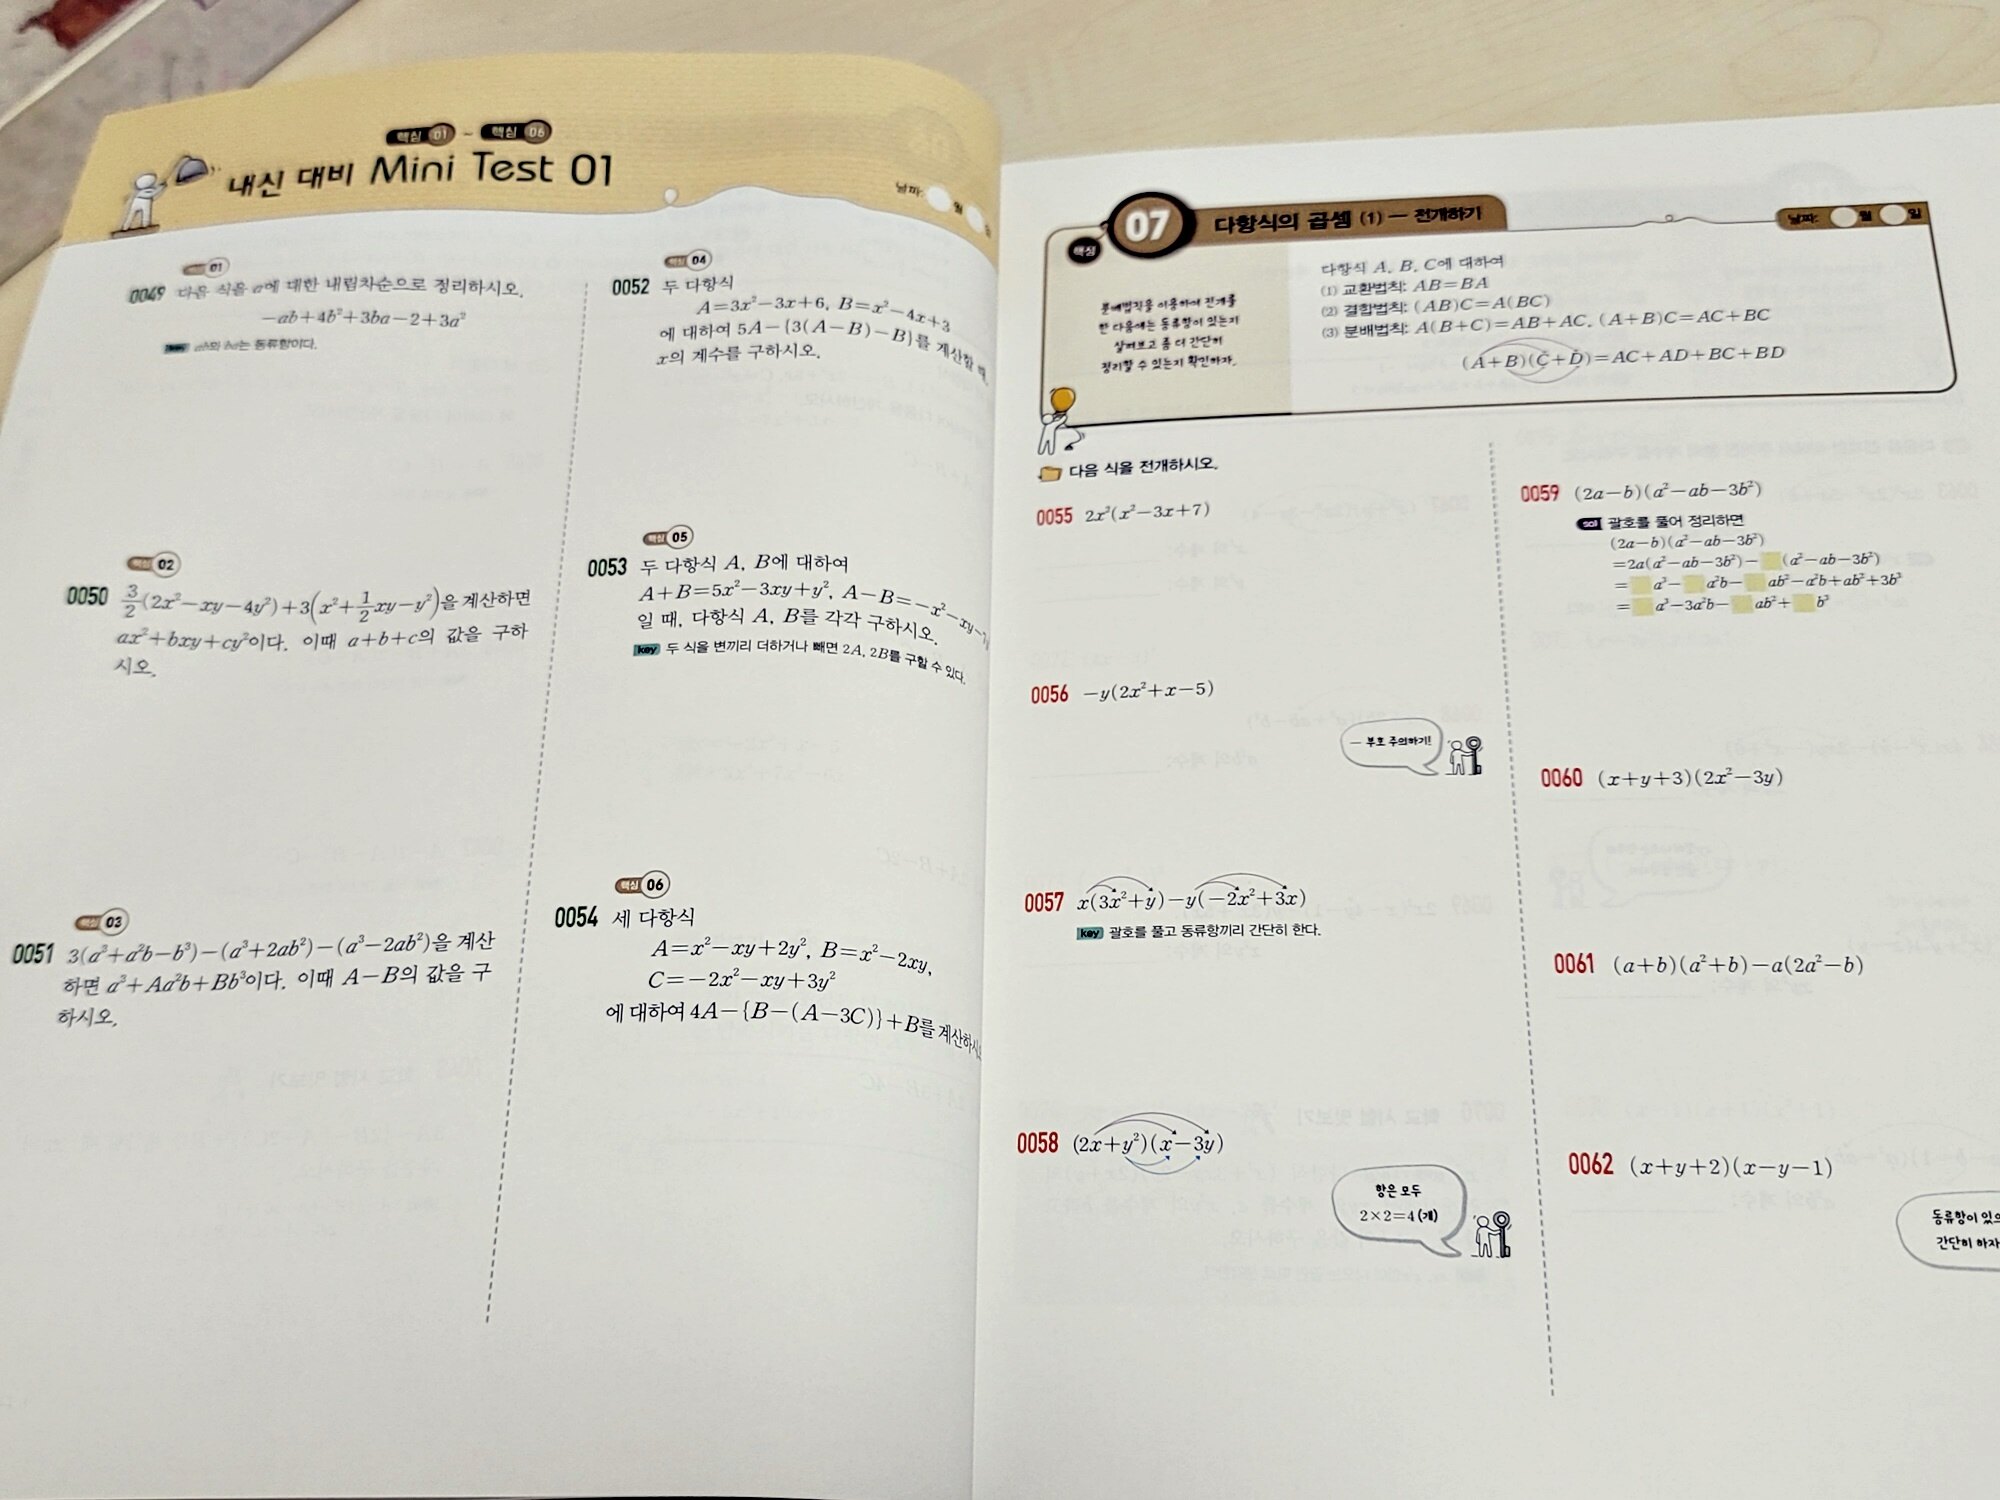 핵심 01 ~ 핵심 06
내신 대비 Mini Test 01
날짜: 월 일
핵심 01
0049 다음 식을 a에 대한 내림차순으로 정리하시오.
−ab+4b²+3ba−2+3a²
key ab와 ba는 동류항이다.
핵심 02
0050 3/2(2x²−xy−4y²)+3(x²+1/2xy−y²)을 계산하면
ax²+bxy+cy²이다. 이때 a+b+c의 값을 구하
시오.
핵심 03
0051 3(a³+a²b−b³)−(a³+2ab²)−(a³−2ab²)을 계산
하면 a³+Aa²b+Bb³이다. 이때 A−B의 값을 구
하시오.
핵심 04
0052 두 다항식
A=3x²−3x+6, B=x²−4x+3
에 대하여 5A−{3(A−B)−B}를 계산할 때,
x의 계수를 구하시오.
핵심 05
0053 두 다항식 A, B에 대하여
A+B=5x²−3xy+y², A−B=−x²−xy−7y
일 때, 다항식 A, B를 각각 구하시오.
key 두 식을 변끼리 더하거나 빼면 2A, 2B를 구할 수 있다.
핵심 06
0054 세 다항식
A=x²−xy+2y², B=x²−2xy,
C=−2x²−xy+3y²
에 대하여 4A−{B−(A−3C)}+B를 계산하시오
핵심 07 다항식의 곱셈 (1) — 전개하기
날짜: 월 일
분배법칙을 이용하여 전개를
한 다음에는 동류항이 있는지
살펴보고 좀 더 간단히
정리할 수 있는지 확인하자.
다항식 A, B, C에 대하여
(1) 교환법칙: AB=BA
(2) 결합법칙: (AB)C=A(BC)
(3) 분배법칙: A(B+C)=AB+AC, (A+B)C=AC+BC
(A+B)(C+D)=AC+AD+BC+BD
다음 식을 전개하시오.
0055 2x³(x²−3x+7)
0056 −y(2x²+x−5)
− 부호 주의하기!
0057 x(3x²+y)−y(−2x²+3x)
key 괄호를 풀고 동류항끼리 간단히 한다.
0058 (2x+y²)(x−3y)
항은 모두
2×2=4(개)
0059 (2a−b)(a²−ab−3b²)
sol 괄호를 풀어 정리하면
(2a−b)(a²−ab−3b²)
=2a(a²−ab−3b²)− (a²−ab−3b²)
= a³− a²b− ab²−a²b+ab²+3b³
= a³−3a²b− ab²+ b³
0060 (x+y+3)(2x²−3y)
0061 (a+b)(a²+b)−a(2a²−b)
0062 (x+y+2)(x−y−1)
동류항이 있으
간단히 하자